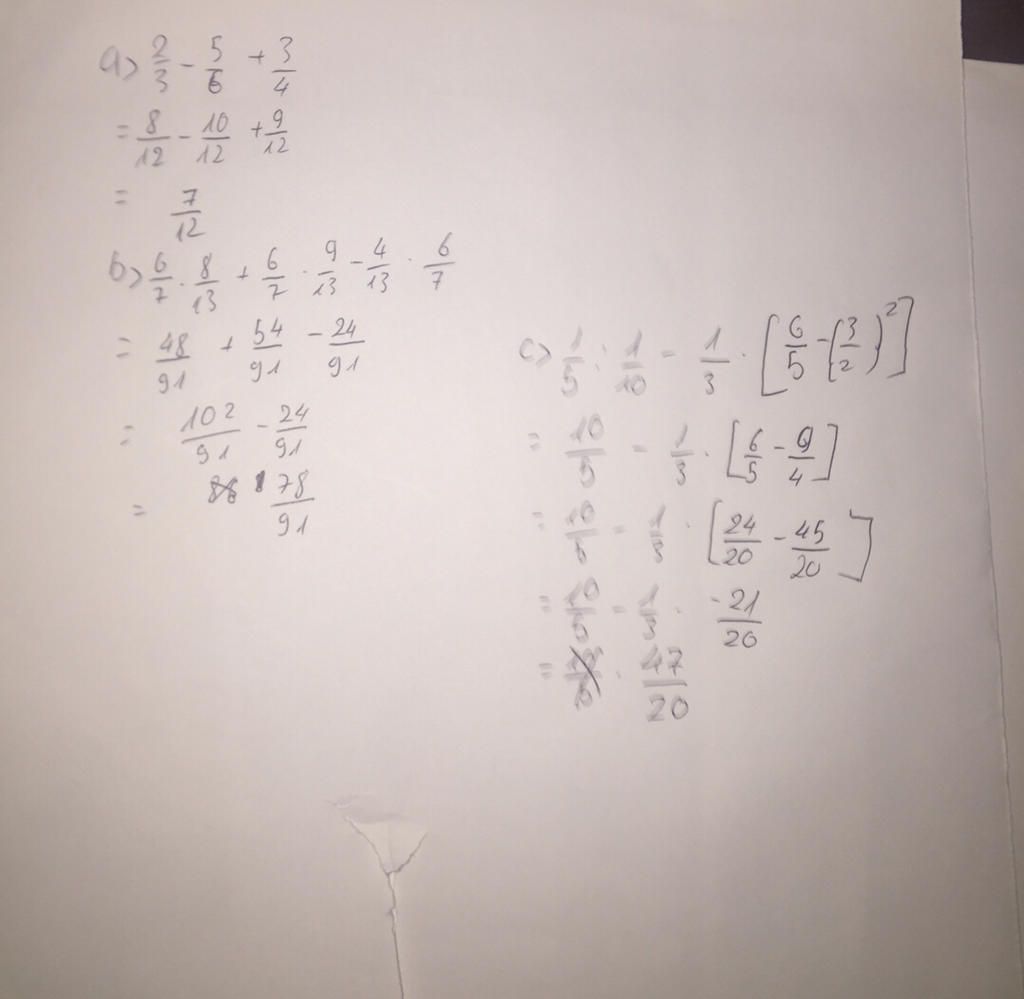 a) 2/3 - 5/6 + 3/4
= 8/12 - 10/12 + 9/12
= 7/12
b) 6/7 . 8/13 + 6/7 . 9/13 - 4/13 . 6/7
= 48/91 + 54/91 - 24/91
= 102/91 - 24/91
= 78/91
c) 1/5 : 1/10 - 1/3 . [6/5 - (3/2)²]
= 10/5 - 1/3 . [6/5 - 9/4]
= 10/5 - 1/3 . [24/20 - 45/20]
= 10/5 - 1/3 . -21/20
= 47/20